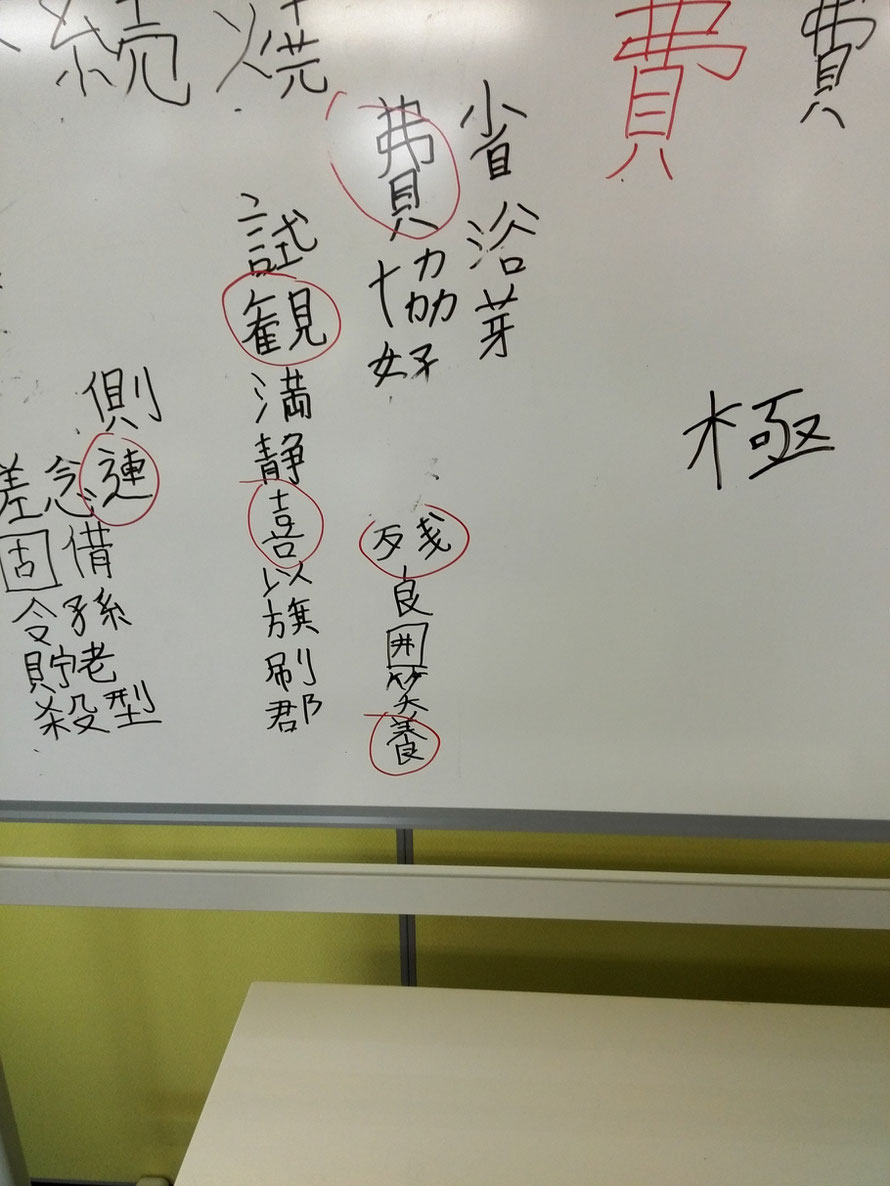 続焼
費
費
極
省浴芽
費協好
残良囲笑養
試観満静喜以旗刷郡
側連借孫老型
念
差固令貯殺